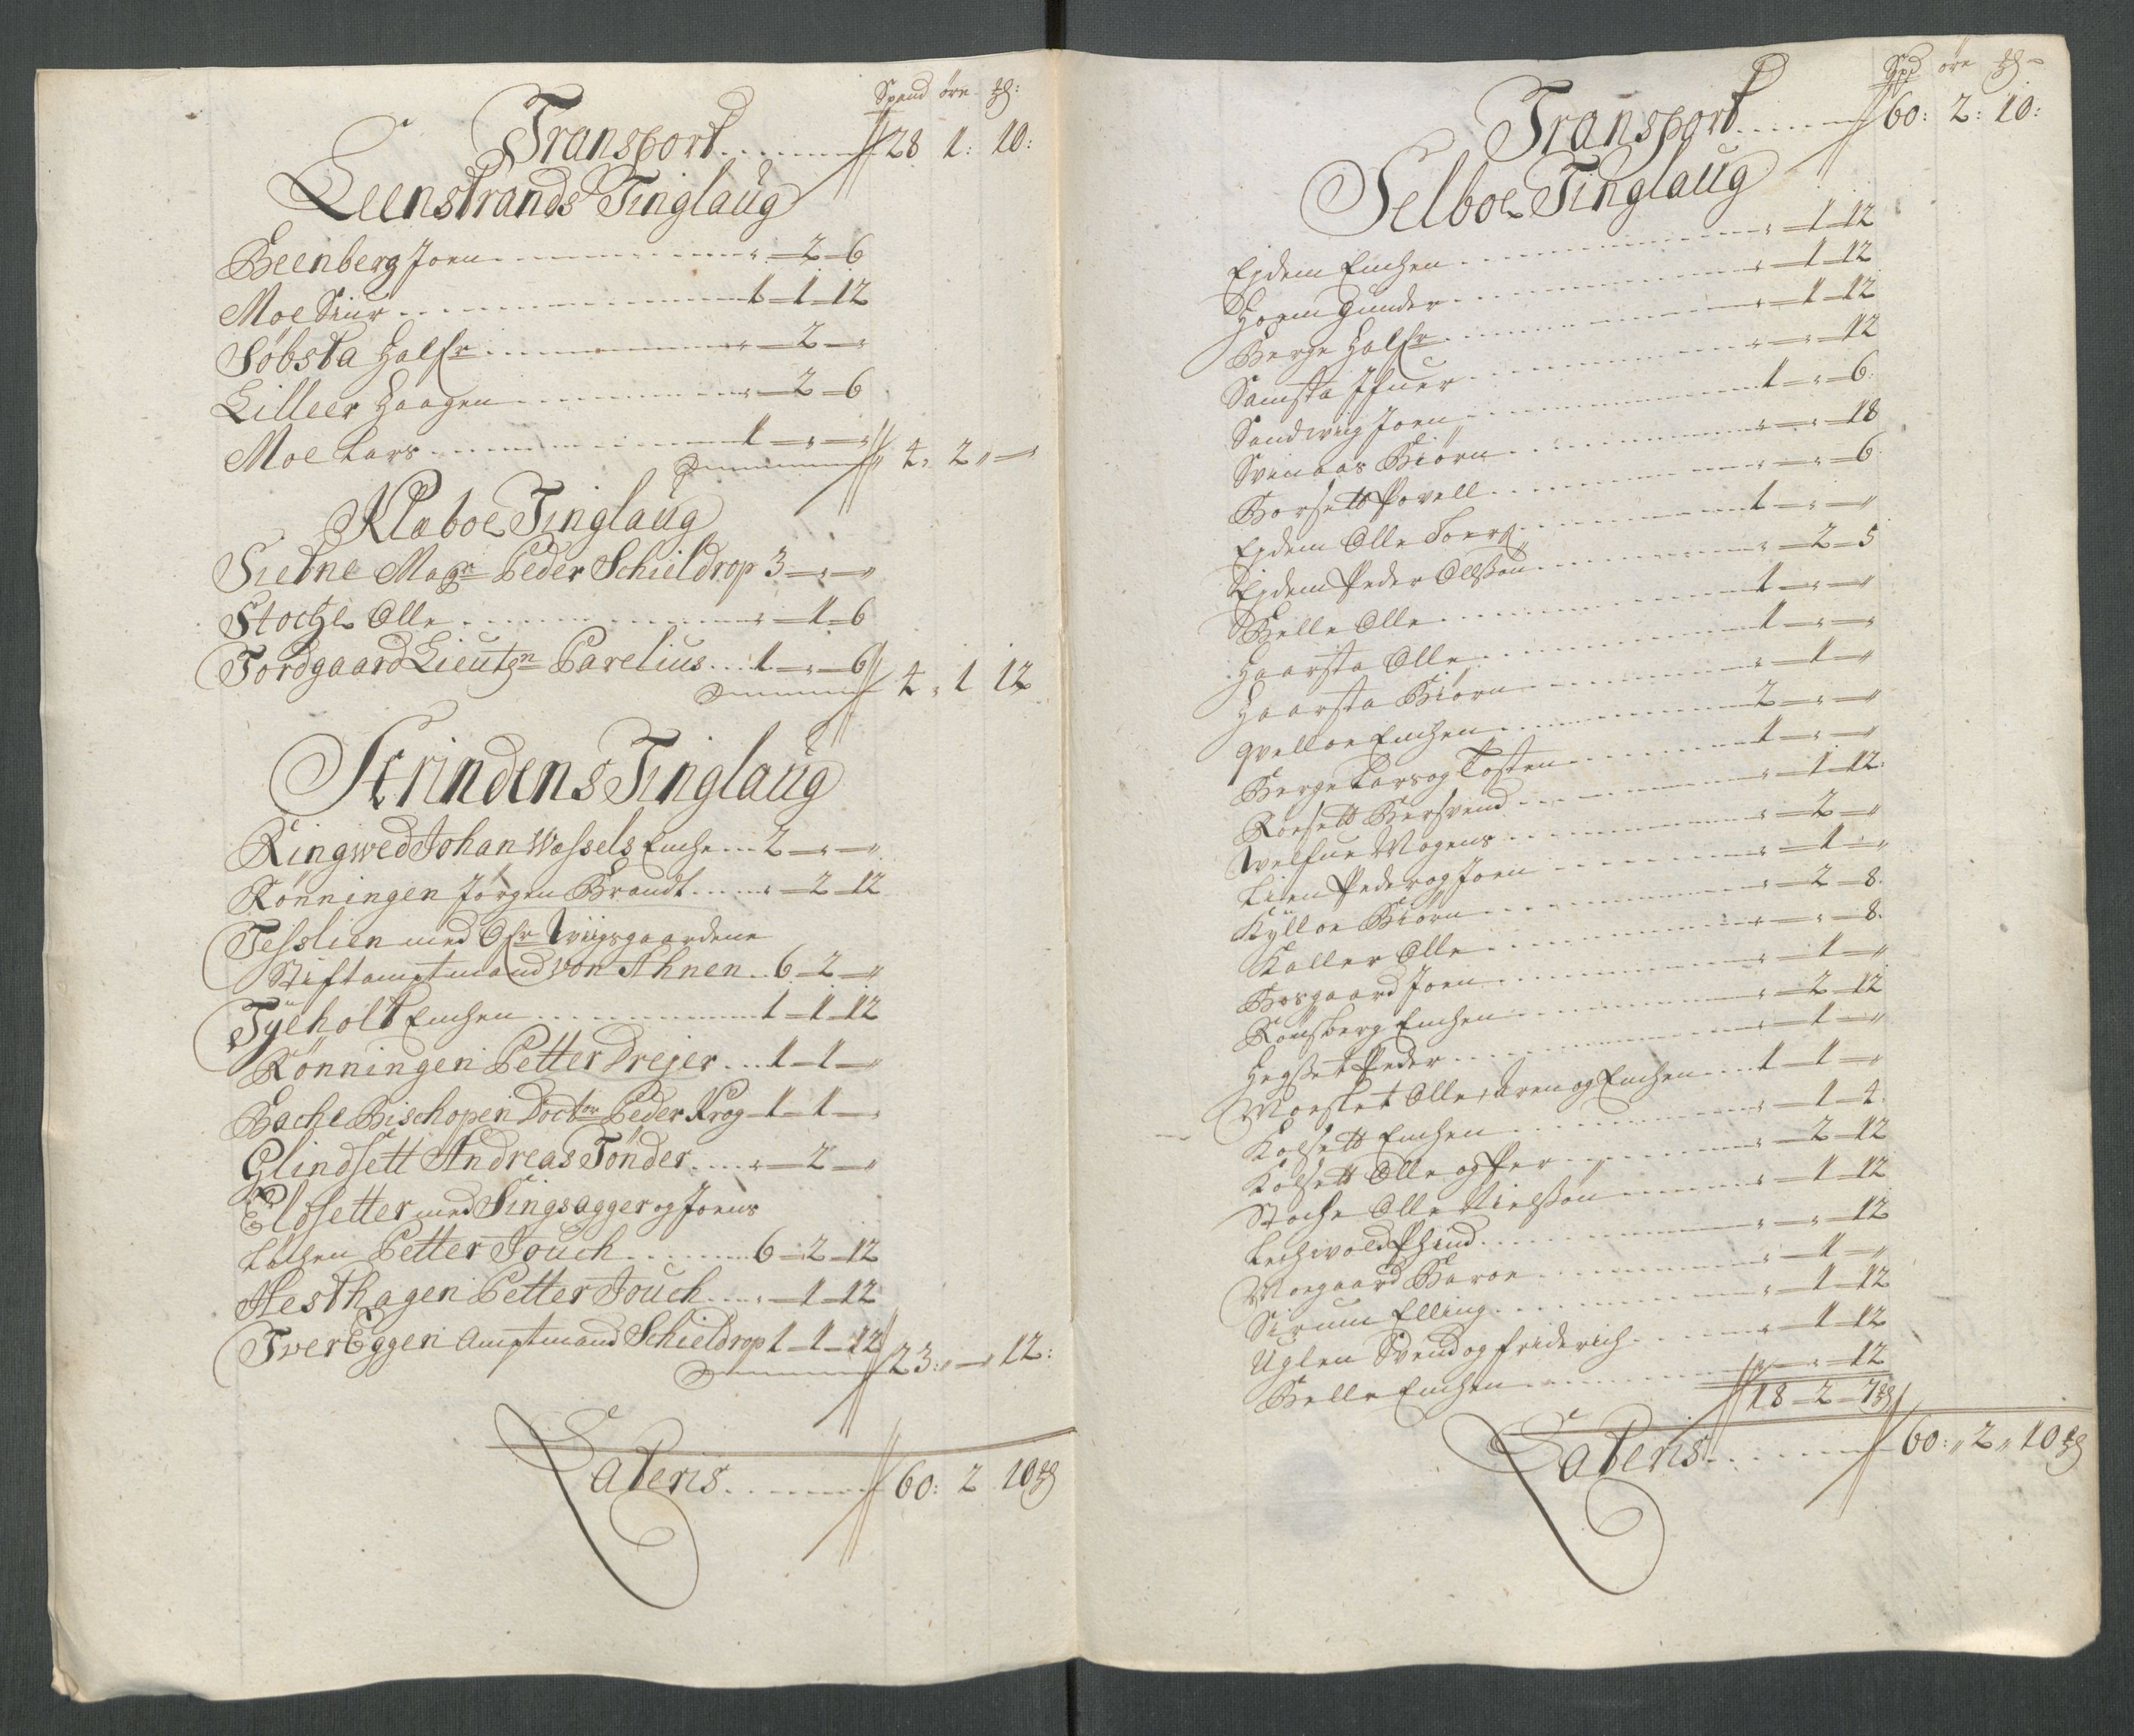 Spand öre ℔:
Transport . . . . 28 1: 10:
Leenstrands Tinglaug
Beenberg Joen . . . . „ 2 6
Moe Siur . . . . 1 1 12
Söbsta Halfr . . . . „ 2 „
Lilleer Haagen . . . . „ 2 6
Moe Lars . . . . 1 „ „ 4, 2 „
Klæboe Tinglaug
Sietne Magr Peder Schieldrop 3 „ „
Stocke Olle . . . . „ 1 6
Tordgaard Lieutn Parelius . . 1 „ 6 4 „ 1 12
Strindens Tinglaug
Ringwed Johan Wessels Enche . . . 2 „ „
Rönningen Jörgen Brandt . . . . „ 2 12
Tesslien med Ofr Wiigsgaardene
Stiftamptmand von Ahnen . . 6 2 „
Tyeholt Enchen . . . . 1 1 12
Rönningen Petter Drejer . . . 1 1 „
Bache Bischopen Doctor Peder Krog 1 1 „
Glindsett Andreas Tönder . . . . „ 2 „
Eldsetter med Singsagger og Joens
Löchen Petter Jouch . . . . 6 2 12
Hesthagen Petter Jouch . . . . „ 1 12
Tver Eggen Amptmand Schieldrop 1 1 12 23: „ 12:
Lateris . . . . 60: 2 10 ℔
Spd öre ℔
Transport . . . . 60: 2: 10:
Selboe Tinglaug
Ejdem Enchen . . . . „ 1 12
Hoem Gunder . . . . „ 1 12
Berge Halfr . . . . „ 1 12
Samsta Ifuer . . . . „ „ 12
Sandwiig Joen . . . . 1 „ 6
Svinaas Biörn . . . . „ „ 18
Borsett Povell . . . . „ „ 6
Ejdem Olle . . . . 1 „ „
Ejdem Peder Ollssen . . . . „ 2 5
Belle Olle . . . . 1 „ „
Haarsta Olle . . . . 1 „ „
Haarsta Biörn . . . . „ 1 „
Qvelloe Enchen . . . . 2 „ „
Berge Lars og Tosten . . . . 1 „ „
Roesett Bersvend . . . . „ 1 12
Welfue Mogens . . . . „ 2 „
Lien Peder og Joen . . . . „ 1 „
Kylloe Biörn . . . . „ 2 8
Kaller Olle . . . . „ „ 8
Bosgaard Joen . . . . „ 1 „
Rönsberg Enchen . . . . „ 2 12
Hegset Peder . . . . „ 1 „
Moeslet Olle, Aren og Enchen . . . 1 1 „
Kolsett Enchen . . . . „ 1 4
Kolsett Olle og Per . . . . „ 2 12
Stoche Olle Nielssön . . . . „ 1 12
Lechvold . . . . „ „ 12
Moegaard Baroe . . . . „ 1 „
Sirum Elling . . . . „ 1 12
Uglen Svend og Friderich . . . . „ 1 12
Belle Enchen . . . . „ „ 12
18 2 7 ℔
Lateris . . . . 60: „ 2 „ 10 ℔